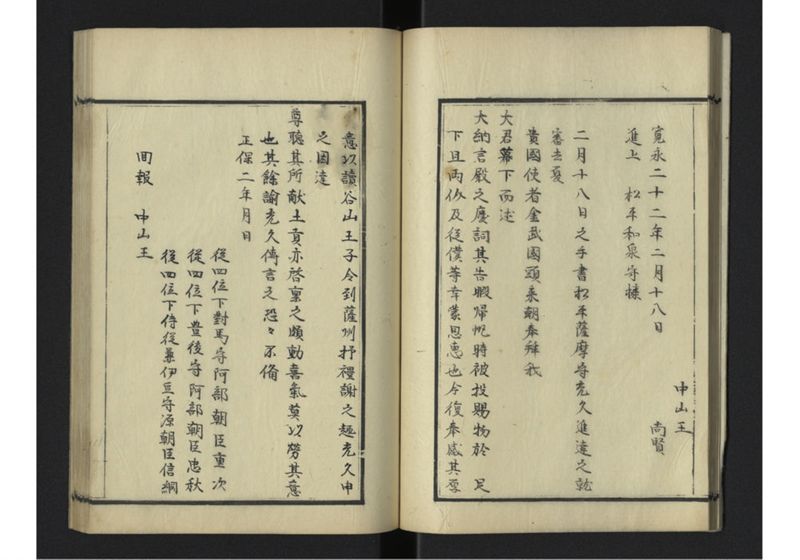 寛永二十二年二月十八日
中山王 尚賢
進上 松平和泉守様
二月十八日之手書松平薩摩守光久進達之乾
審去夏
貴國使者金武國頭来朝奉拜我
大君幕下而述
大納言殿之慶詞其告暇歸帆時被投賜物於 足
下且両 及従僕等幸蒙恩恵也今復奉感其厚
意以讀谷山王子令到薩州抒禮謝之趣光久申
之因達
尊聴其所献土貢亦啓稟之頗動喜氣莫以勞其意
也其餘諭光久傳言之恐々不備
正保二年月日
従四位下對馬守阿部朝臣重次
従四位下豊後守阿部朝臣忠秋
従四位下侍従兼伊豆守源朝臣信綱
回報 中山王